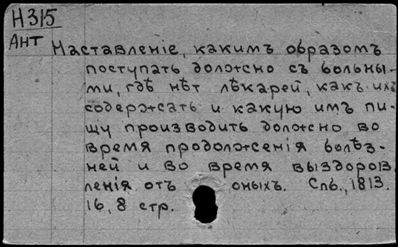 Н315
Ант
Наставленіе, какимъ образомъ
поступать должно съ больны-
ми, гдѣ нѣт лѣкарей, какъ ихъ
содержать и какую имъ пи-
щу производить должно во
время продолженія болѣз-
ней и во время выздоров
ленія отъ оныхъ. Спб., 1813.
16, 8 стр.